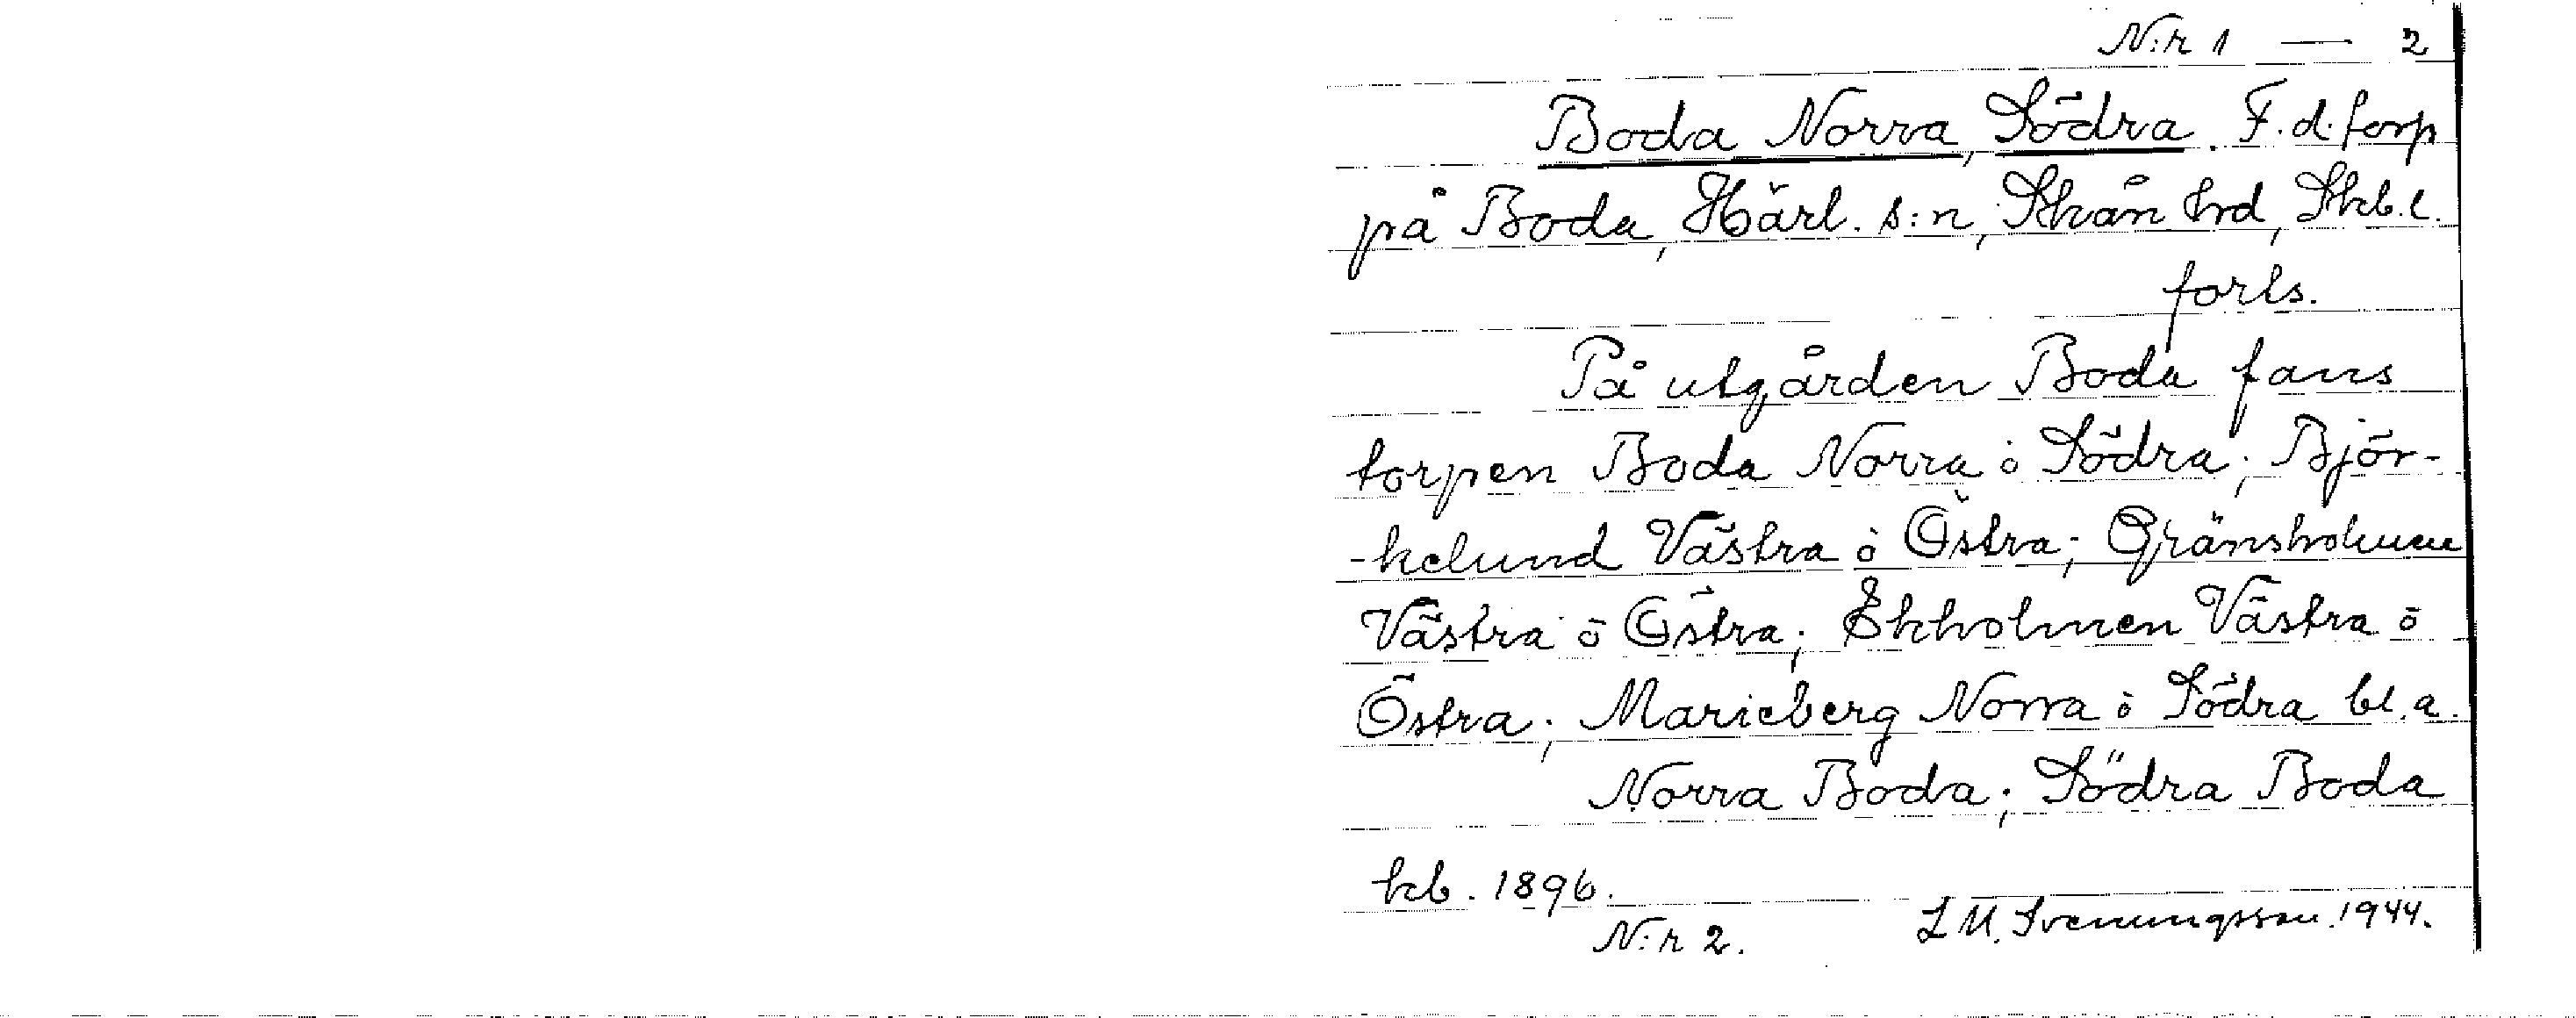 N:r 1 — 2
Boda Norra, Södra. F.d. torp
på Boda, Härl. s:n, Skån hrd, Skb.l.
forts.
På utgården Boda fans
torpen Boda Norra ö Södra; Björ-
-kelund Västra ö Östra; Gränsholmen
Västra ö Östra; Ekholmen Västra ö
Östra; Marieberg Norra ö Södra bl.a.
Norra Boda; Södra Boda
kb. 1896.
N:r 2. L M. Svenungsson. 1944.